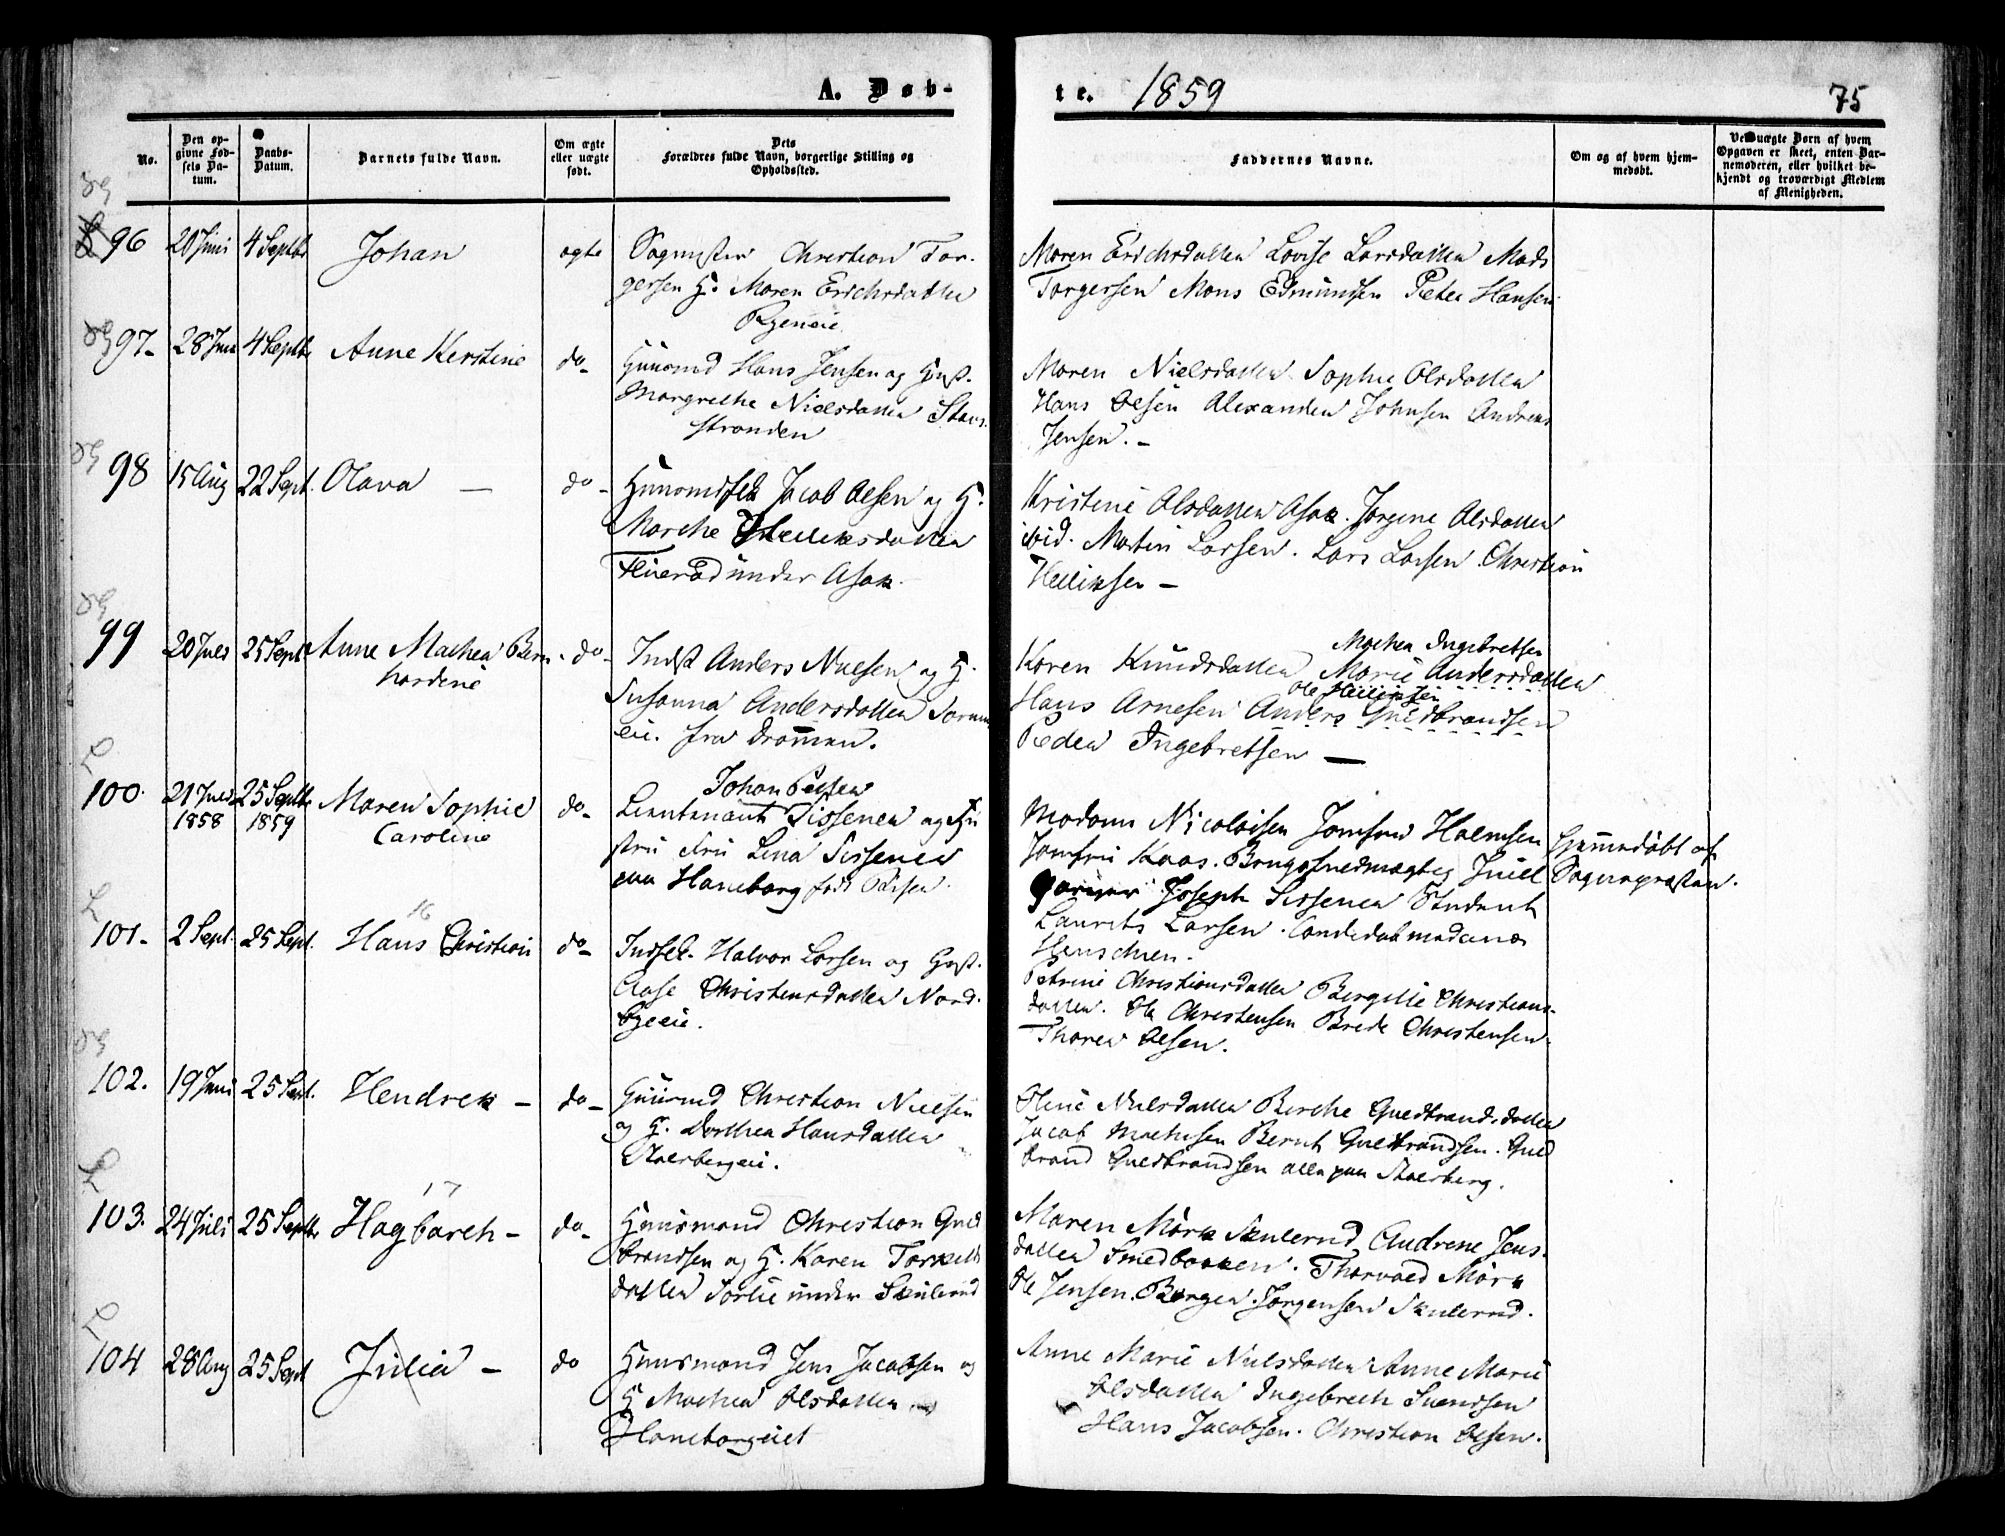 A. Døb-
te. 1859
75
No.
Den op-
givne Fød-
sels Da-
tum.
Daabs-
Datum.
Barnets fulde Navn.
Om ægte
eller uægte
født.
Dets
Forældres fulde Navn, borgerlige Stilling og
Opholdssted.
Faddernes Navne.
Om og af hvem hjem-
medøbt.
Ved uægte Børn af hvem
Opgaven er skeet, enten Bar-
nemoderen, eller hvilket be-
kjendt og troværdigt Medlem
af Menigheden.
96 20 Juni 4 Septbr Johan ægte
Christian Tor-
gersen H. Maren Erichsdatter
Maren Erichsdatter Lovise Larsdatter Mads
Torgersen Mons Edmundsen Peter Hansen
97- 28 Juni 4 Septbr Anne Kerstine do-
Huusmd Hans Jensen og Hust.
Margrethe Nielsdatter Stens-
stranden
Maren Nielsdatter Sophie Olsdatter
Hans Olsen Alexander Johnsen Andreas
Jensen. -
98 15 Aug 22 Sept. Olava - do-
Jacob Olsen og H.
Marthe
under Asak.
Kristine Olsdatter Asak. Jørgine Olsdatter
ibid. Martin Larsen. Lars Larsen Christian
-
99 20 Juli 25 Sept Anne Mathea Bern- do-
hardine
Inds Anders Nielsen og H.
Susanna Andersdatter
eie. fra Drammen.
Mathea Ingebretsen
Karen Knudsdatter Marie Andersdatter
Ole
Hans Arnesen Anders Guldbrandsen
Peder Ingebretsen -
100. 21 Juli 25 Septbr Maren Sophie do-
1858 1859 Caroline
Johan Petter
Lieutenant Sissener og Hu
stru Fru Lina Sissener
paa Haneborg født
Madam Nicolaisen Jomfru Holmsen
Jomfru Kaas. Brugsfuldmægtig Juell
Joseph Sissener Student
Laurits Larsen. Candidat
Henschien.
Hjemmedøbt af
Sognepræsten.
16
101- 2 Sept. 25 Sept. Hans Christian do-
Halvor Larsen og Hust.
Aase Christensdatter Nord-
byeeie.
Petrine Christiansdatter Bergitte Christians-
datter. Ole Christensen Brede Christensen.
Thorer Olsen.
102. 19 Juni 25 Sept. Hendrik - do-
Huusmd Christian Nielsen
og H. Dorthea Hansdatter
Oline Nielsdatter Berthe Guldbrandsdatter
Jacob Mathisen Bernt Guldbrandsen. Guld
brand Guldbrandsen alle paa
17
103. 24 Juli 25 Septbr Hagbarth - do-
Huusmand Christian Guld
brandsen og H. Karen Torkilds
datter Sørlie under Skulerud
Maren Mørk Skulerud Andrine Jens-
datter Smedbakken. Thorvald Mørk
Ole Jensen. Børger Jørgensen Skulerud.
104 28 Aug 25 Sept Julia - do
Huusmand Jens Jacobsen og
H Mathea Olsdatter
Haneborgeiet
Anne Marie Nielsdatter Anne Marie
Olsdatter Ingebreth Svendsen
Hans Jacobsen. Christian Olsen.